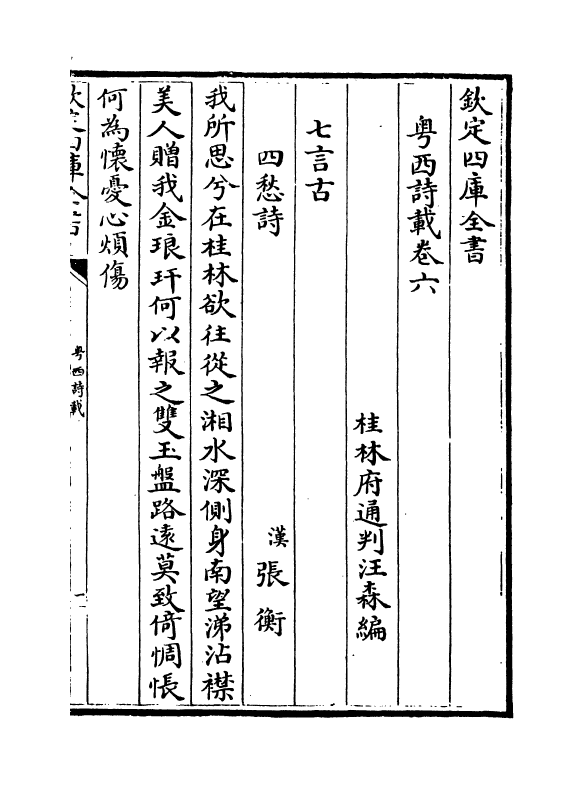 欽定四庫全書
粤西詩載卷六
桂林府通判汪森編
七言古
四愁詩
漢 張衡
我所思兮在桂林欲往從之湘水深側身南望涕沾襟
美人贈我金琅玕何以報之雙玉盤路遠莫致倚惆悵
何為懷憂心煩傷
粤西詩載